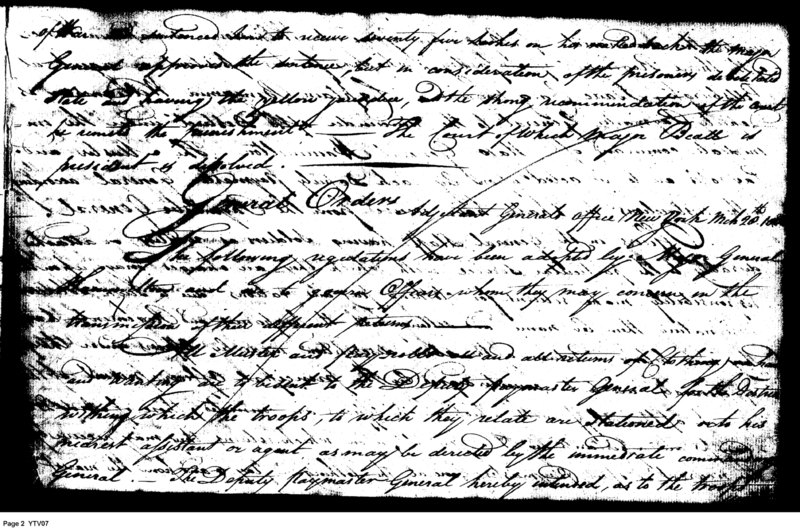 of them and sentenced him to receive seventy five lashes on his naked back the major
General approves the sentence, but in consideration of the prisoners debilitated
state and having the yellow jaundice, and the strong recommendation of the court
he remits the punishment — The Court of which Major Beall is
president is dissolved.
General Orders
Adjutant Generals office New York Mch 20th
The following regulations have been adopted by Major General
and to govern Officers whom they may concern in the
transmission of their different returns
All Muster and pay rolls and all returns of Clothing
and wanting are to be sent to the Deputy paymaster General for the District
within which the troops, to which they relate are stationed or to his
nearest assistant or agent as may be directed by the immediate
General. — The Deputy paymaster General hereby intended, as to the troops
Page 2 YTV07